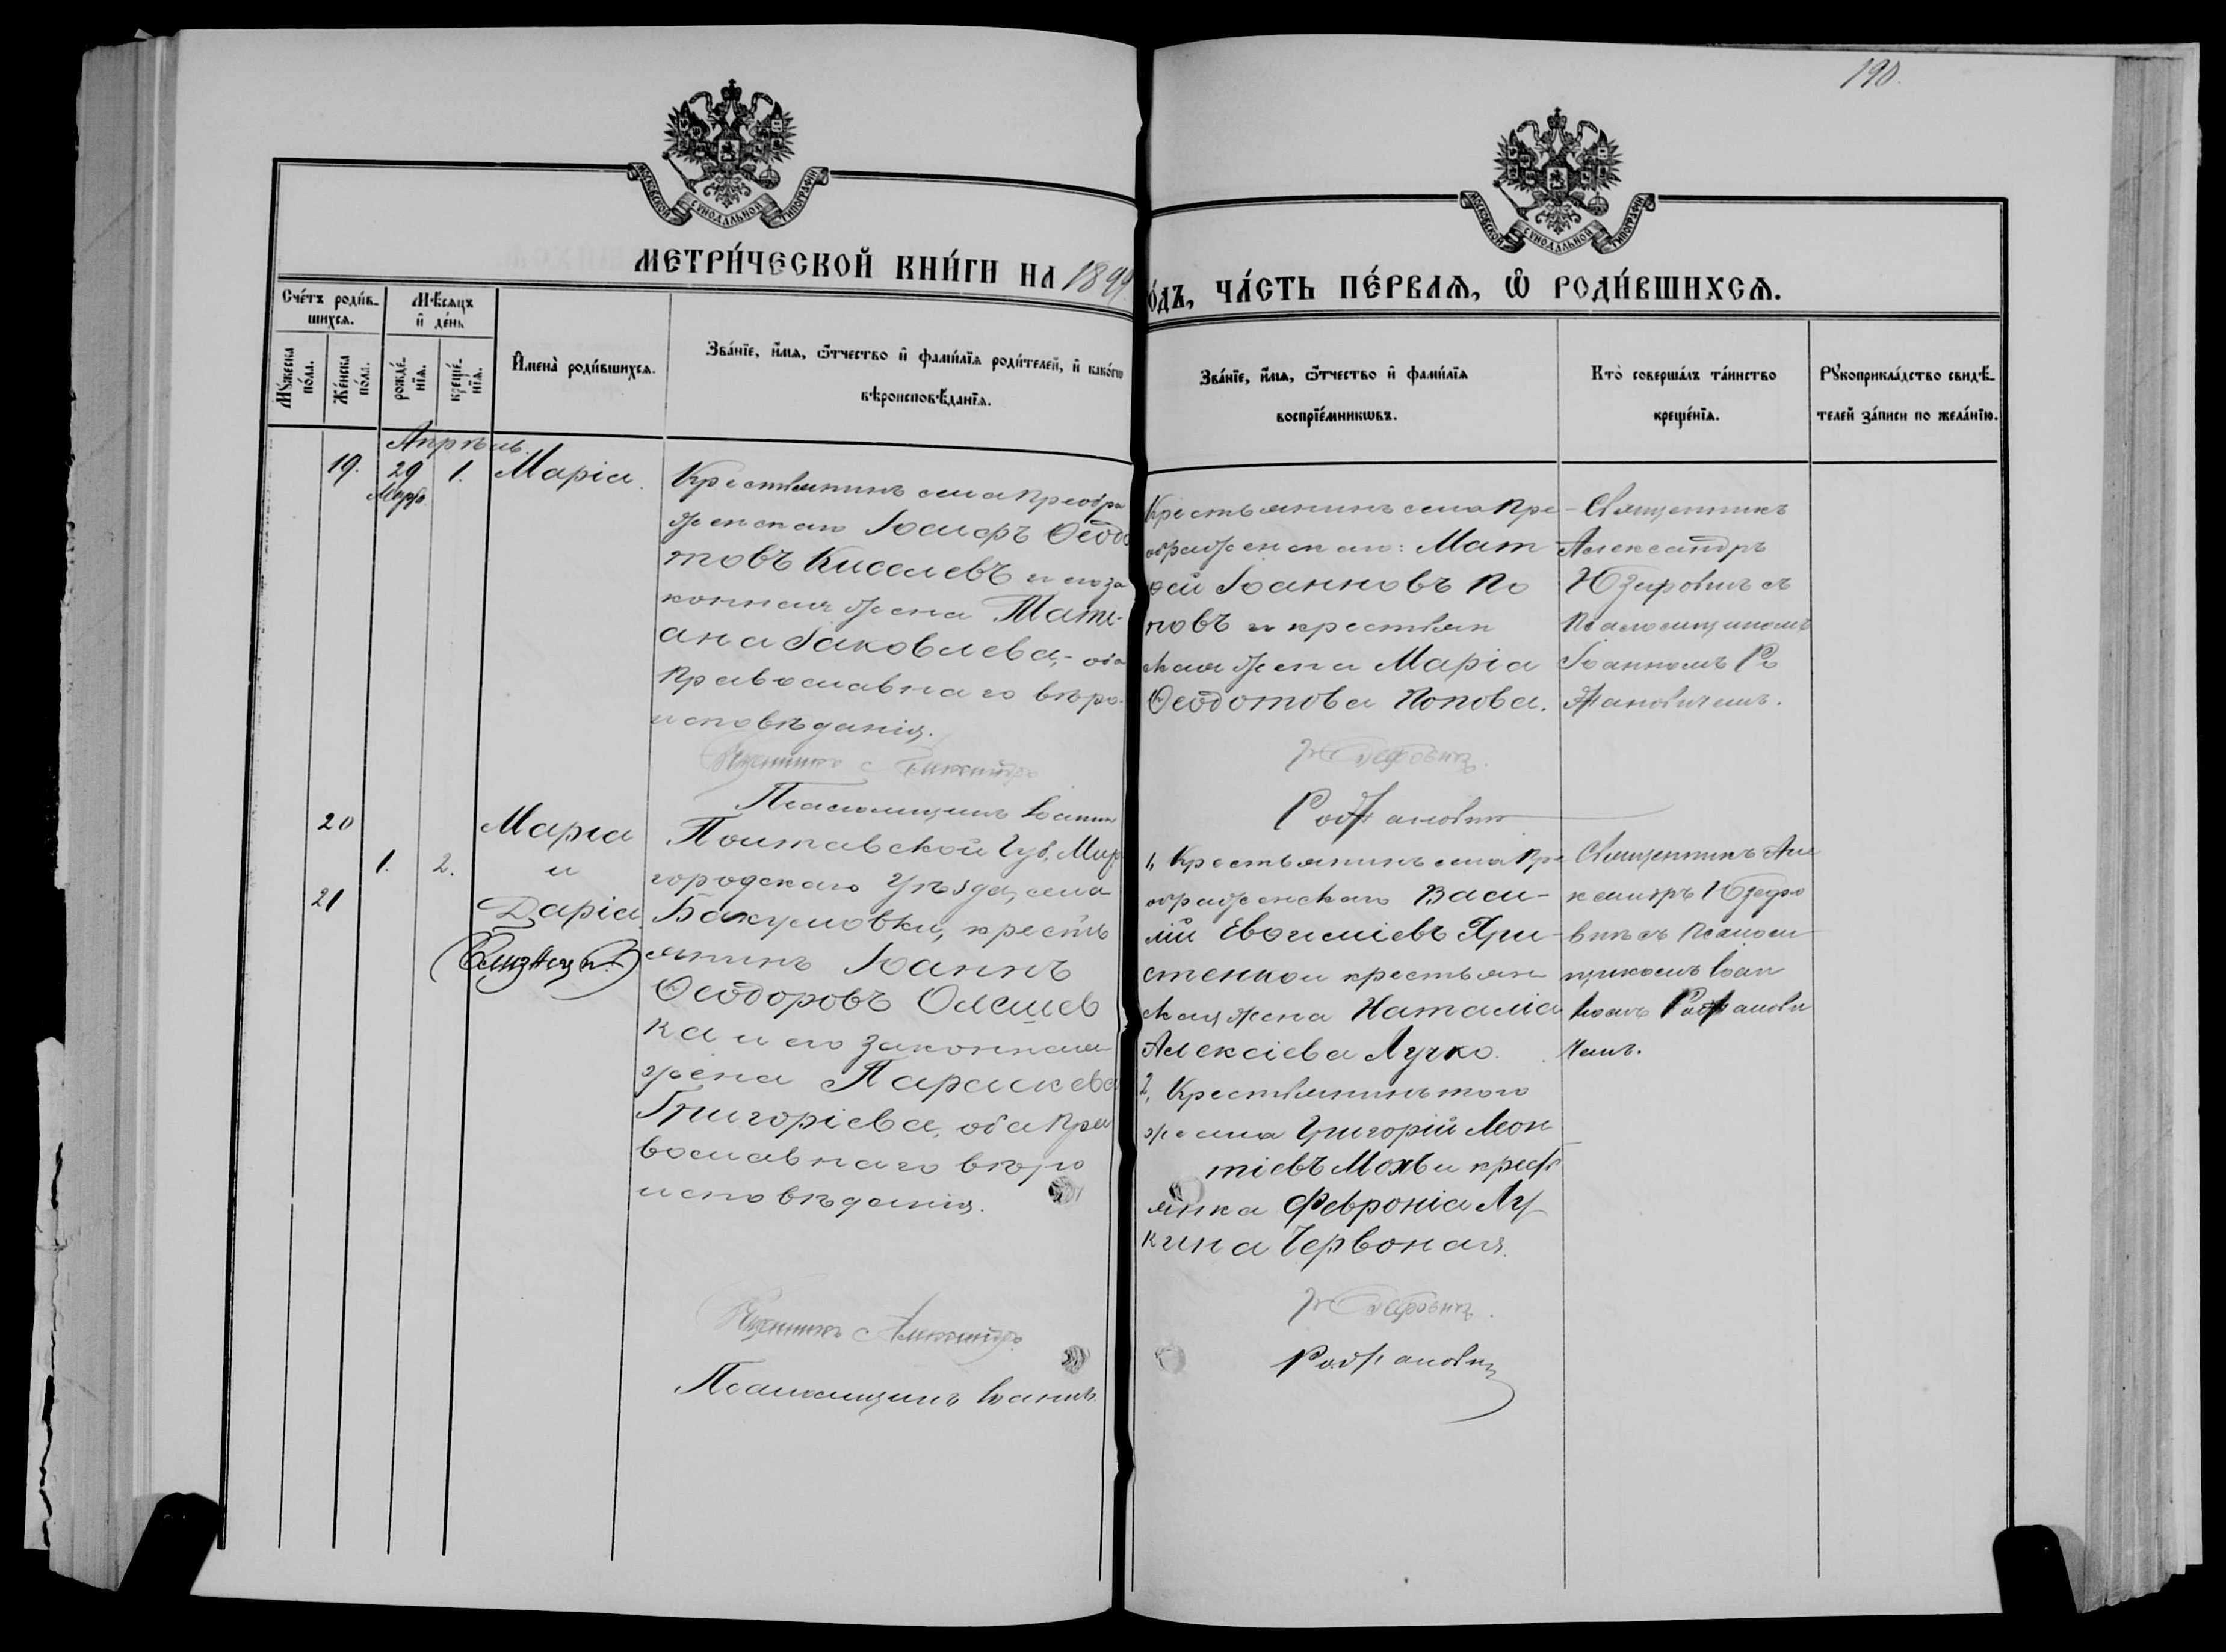 190.
МОСКОВСКОЙ СѴНОДАЛЬНОЙ ТИПОГРАФІИ
МОСКОВСКОЙ СѴНОДАЛЬНОЙ ТИПОГРАФІИ
МЕТРИ́ЧЕСКОЙ КНИ́ГИ НА 1899
О́ДЪ, ЧА́СТЬ ПЕ́РВАѦ, Ѽ РОДИ́ВШИХСѦ.
Сче́тъ роди́в-
шихсѧ.
Мѣ́сѧцъ
и҆ де́нь
Мꙋ́жеска
по́ла.
Же́нска
по́ла.
рожде́-
нїѧ.
креще́-
нїѧ.
И҆мена̀ роди́вшихсѧ.
Зва́нїе, и҆́мѧ, ѻ҆́тчество и҆ фами́лїѧ роди́телей, и҆ како́гѡ
вѣроисповѣ́данїѧ.
Зва́нїе, и҆́мѧ, ѻ҆́тчество и҆ фами́лїѧ
воспрїе́мникѡвъ.
Кто̀ соверша́лъ та́инство
креще́нїѧ.
Рꙋкоприкла́дство свидѣ́-
телей за́писи по жела́нїю.
Апрѣль.
19.
29
Марта
1.
Марія.
Крестьянинъ села Преобра
женскаго Іосифъ Ѳеодо
товъ Киселевъ и его за
конная жена Тати-
ана Іаковлева, - оба
Православнаго вѣро-
исповѣданія.
Священникъ Александръ
Псаломщикъ Іоаннъ
Крестьянинъ села Пре-
ображенскаго: Мат
ѳей Іоанновъ По
повъ и крестьян
ская жена Марія
Ѳеодотова Попова.
Родановичъ
Священникъ
Александръ
Юзефовичъ съ
Псаломщикомъ
Іоанномъ Ро
дановичемъ.
20
21
1.
2.
Марія
и
Дарія
(Близнецы)
Полтавской Губ. Мир
городскаго Уѣзда, села
Бакумовки, кресть
янинъ Іоаннъ
Ѳеодоровъ Олешев
ка и его законная
жена Параскева
Григоріева, оба Пра
вославнаго вѣро
исповѣданія.
Священникъ Александръ
Псаломщикъ Іоаннъ
1, Крестьянинъ села Пре
ображенскаго Васи-
лій Евѳиміевъ Хри-
стенко и крестьян
ская жена Наталія
Алексіева Лучко.
2, Крестьянинъ того
же села Григорій Леон
тіевъ Мохъ и кресть
янка Февронія Лу
кина Червоная.
Родановичъ
Священникъ Але
ксандръ Юзефо
вичъ съ Псаломщи
щикомъ Іоан
номъ Родanови
чемъ.